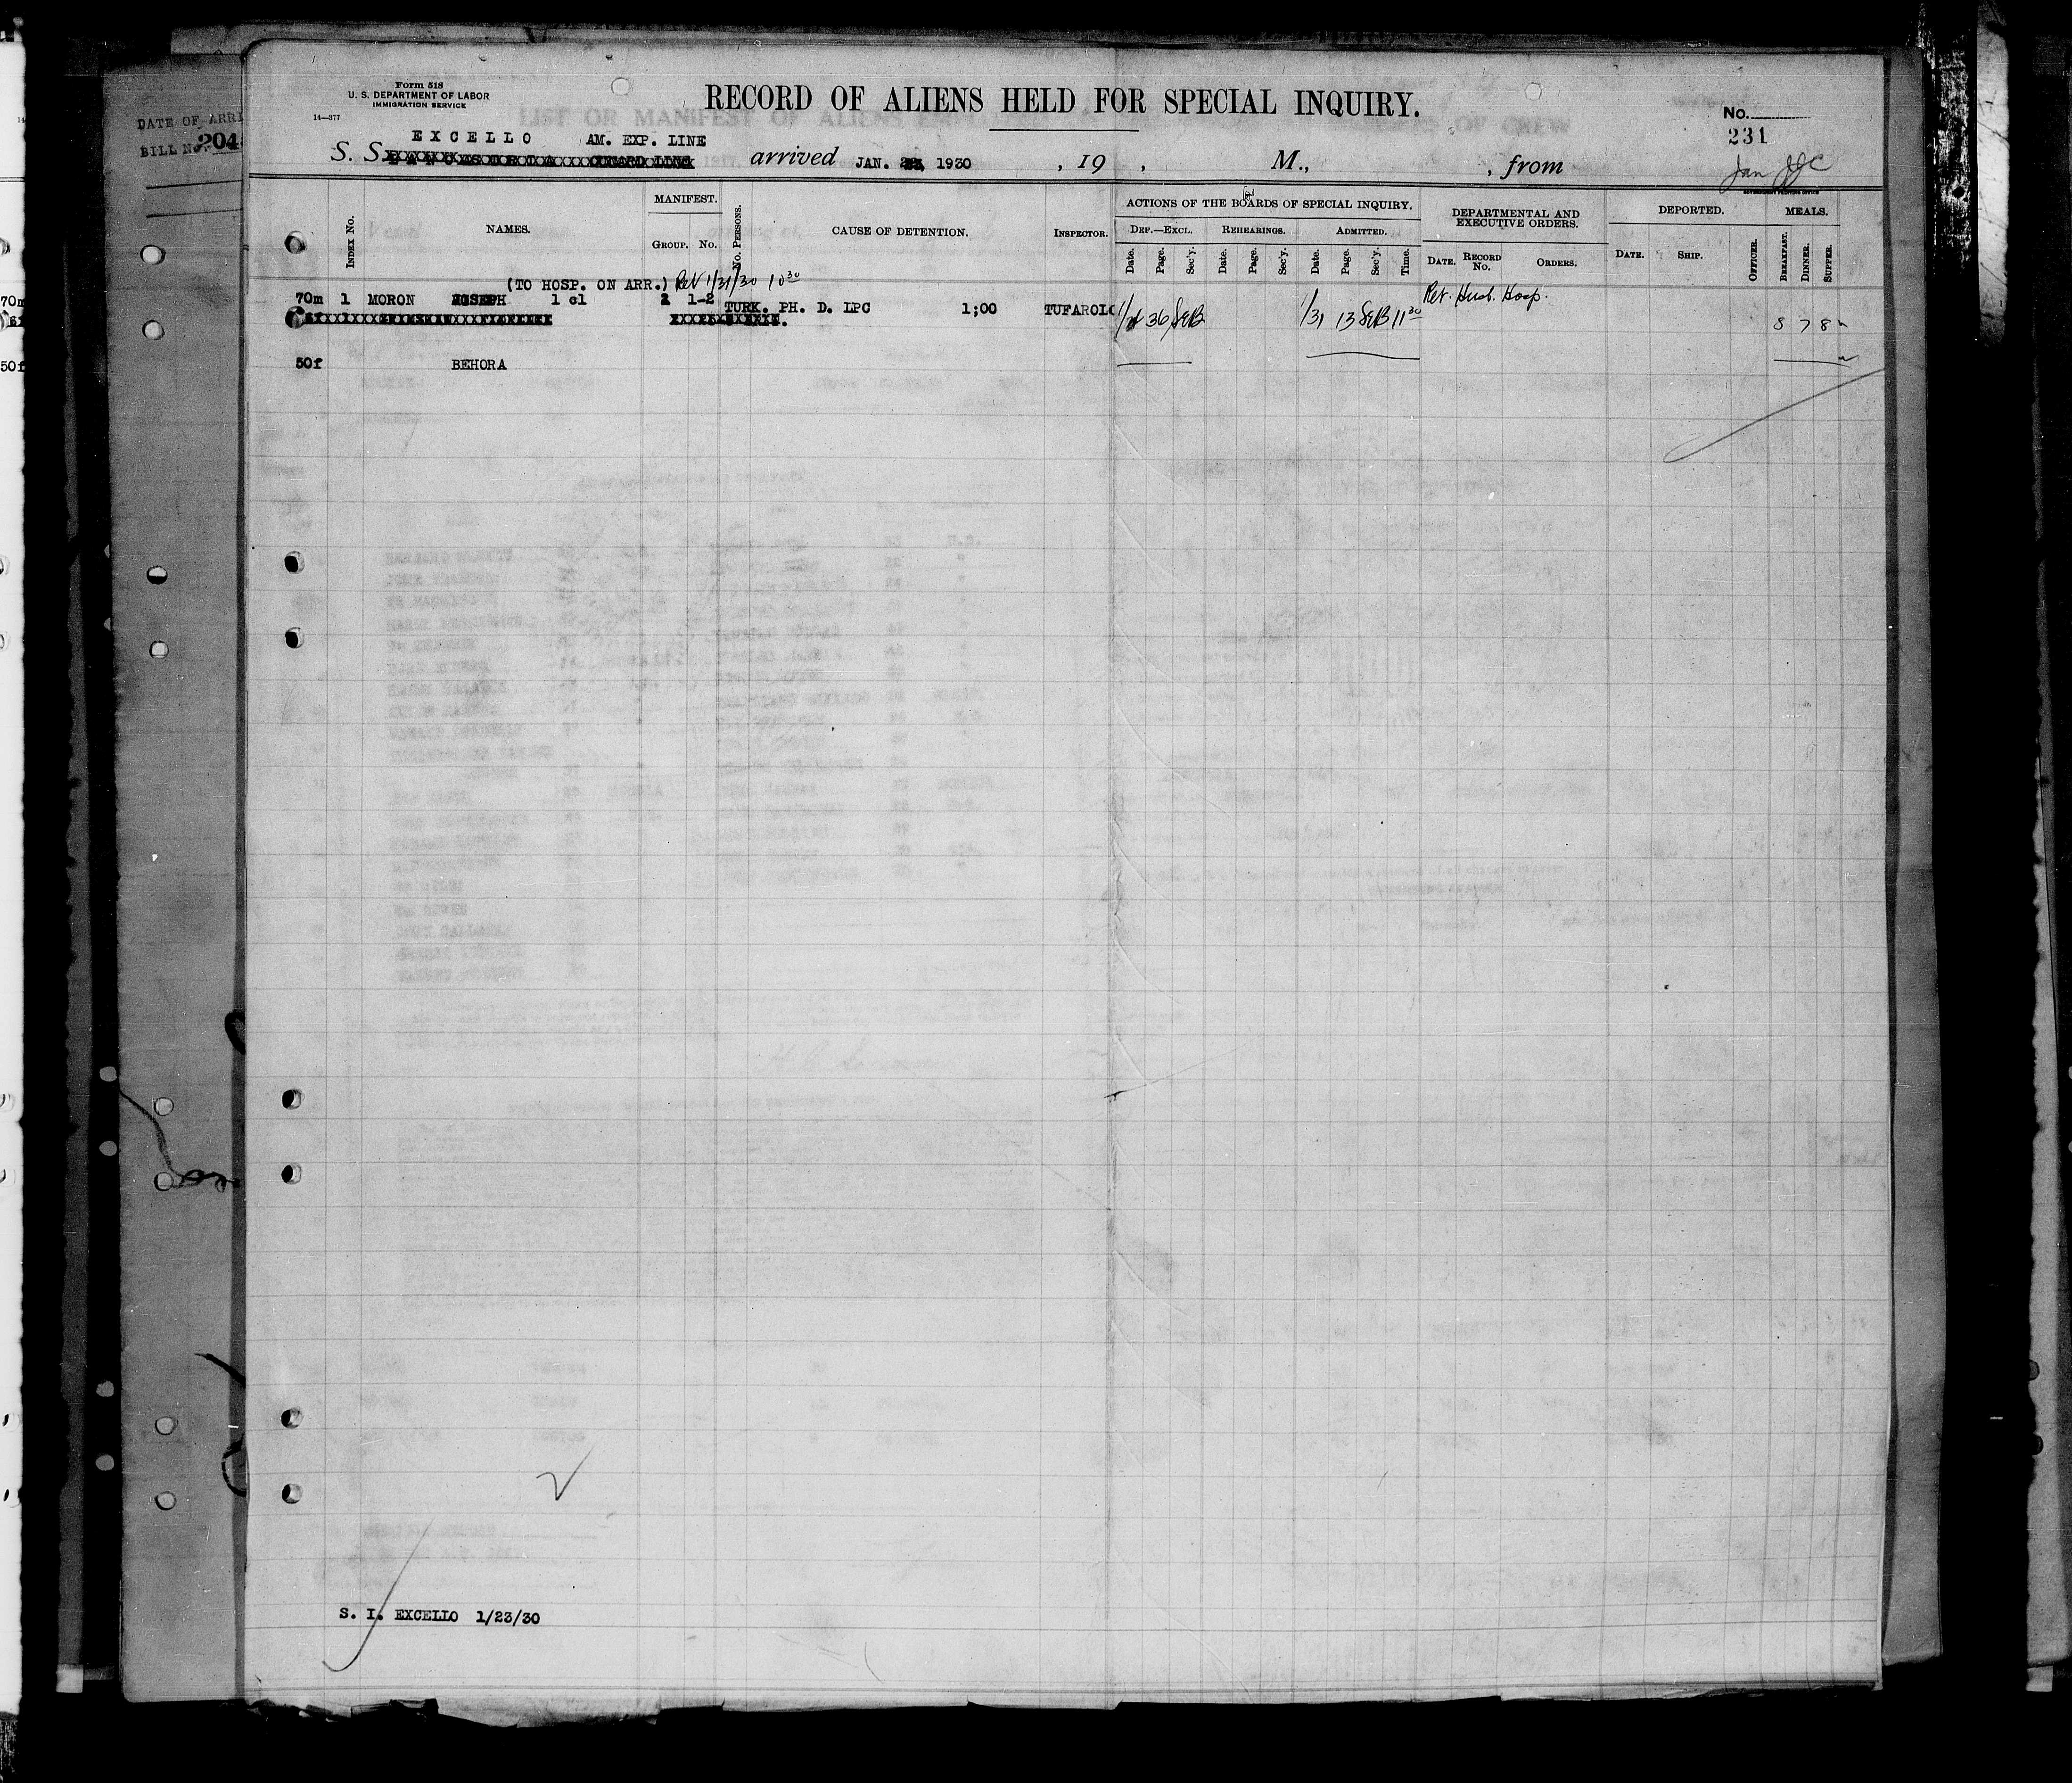 Form 518
U. S. DEPARTMENT OF LABOR
IMMIGRATION SERVICE
14—377
RECORD OF ALIENS HELD FOR SPECIAL INQUIRY.
No.
231
DATE OF ARRI
BILL No. 204
EXCELLO AM. EXP. LINE
S. S. arrived JAN. 1930 , 19 , M., , from
Jan
INDEX No.
NAMES.
MANIFEST.
GROUP. No.
No. PERSONS.
CAUSE OF DETENTION.
INSPECTOR.
ACTIONS OF THE BOARDS OF SPECIAL INQUIRY.
DEF.—EXCL. REHEARINGS. ADMITTED.
Date. Page. Sec'y. Date. Page. Sec'y. Date. Page. Sec'y. Time.
DEPARTMENTAL AND EXECUTIVE ORDERS.
DATE. RECORD No. ORDERS.
DEPORTED.
DATE. SHIP. OFFICER.
MEALS.
BREAKFAST. DINNER. SUPPER.
(TO HOSP. ON ARR.) Ret 1/31/30 10 30
70m 1 MORON JOSEPH 1 cl 1 1-2 TURK. PH. D. LPC 1;00 TUFAROLO 36 SEB 1/31 13 SEB 11 30 Ret. Husb. Hosp. 8 7 8
50f BEHORA
S. I. EXCELLO 1/23/30
70m
50f